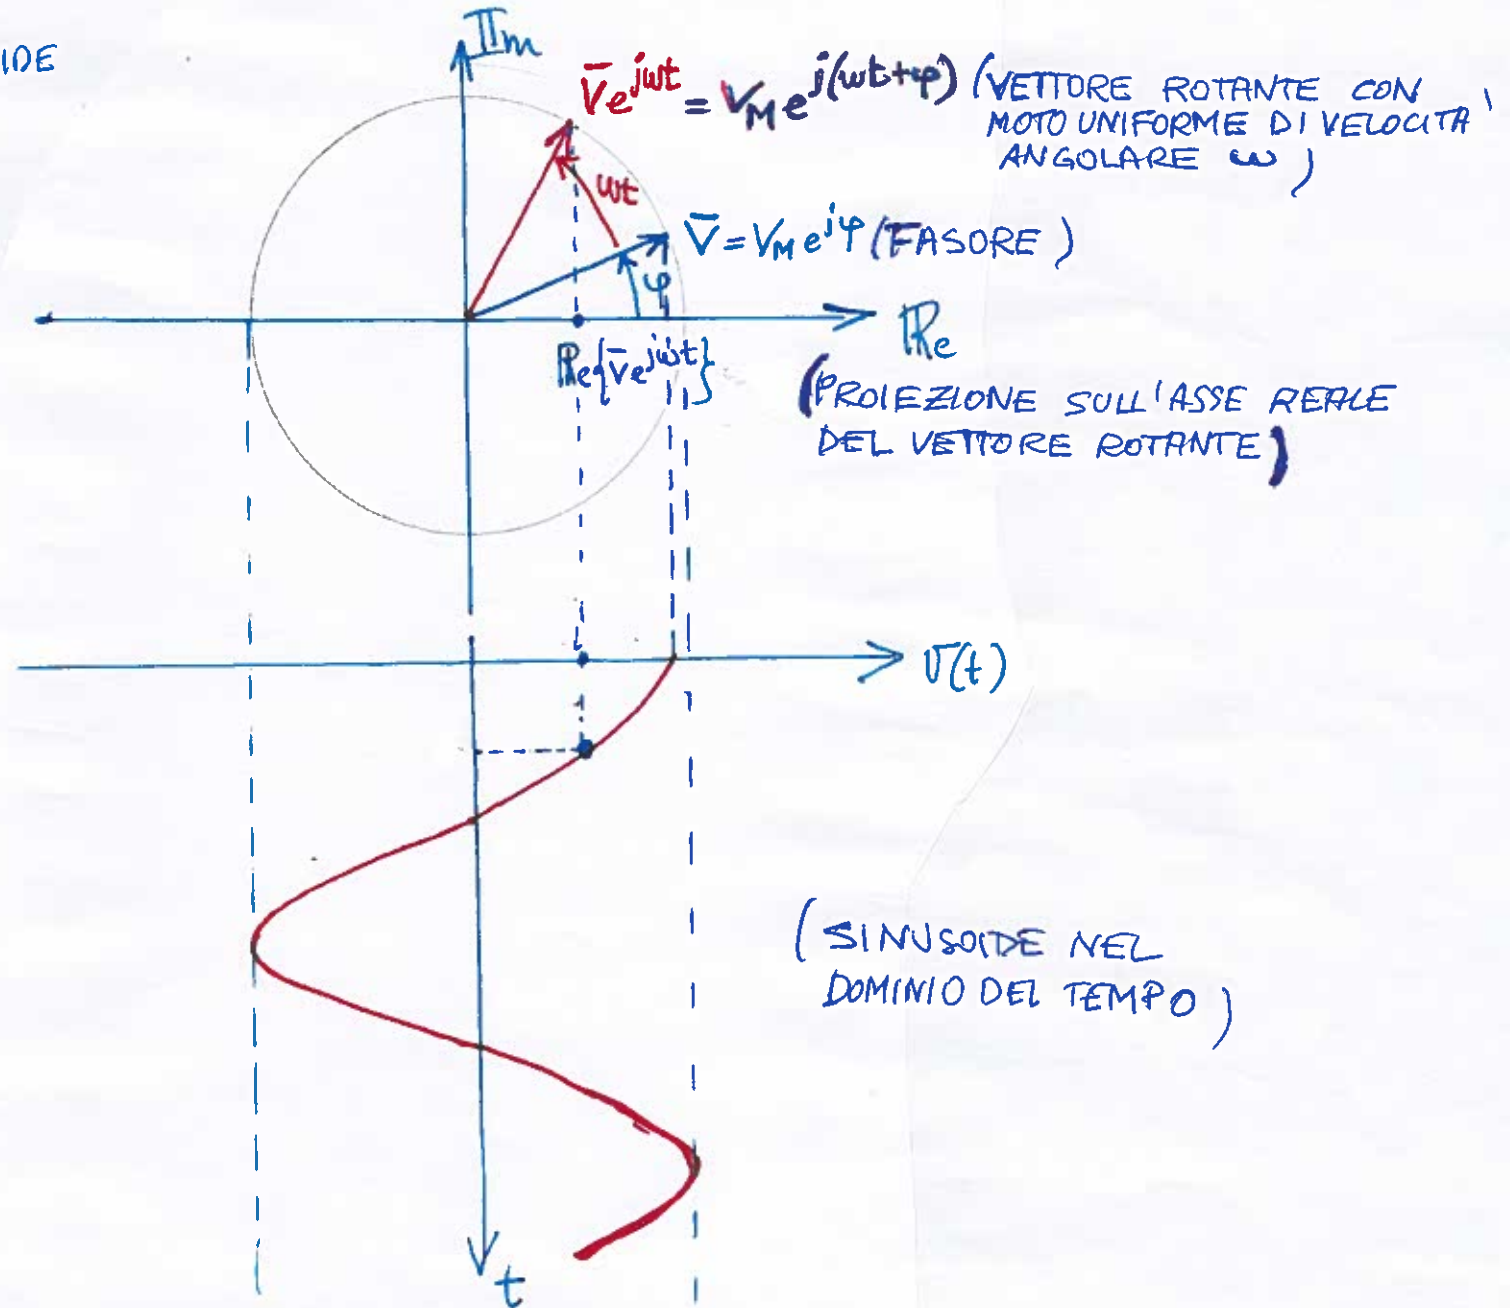 IDE
Im
V̄e^{jωt} = V_M e^{j(ωt+φ)} (VETTORE ROTANTE CON
MOTO UNIFORME DI VELOCITA'
ANGOLARE ω)
ωt
V̄ = V_M e^{jφ} (FASORE)
φ
Re
Re{V̄e^{jωt}}
(PROIEZIONE SULL'ASSE REALE
DEL VETTORE ROTANTE)
v(t)
(SINUSOIDE NEL
DOMINIO DEL TEMPO)
t